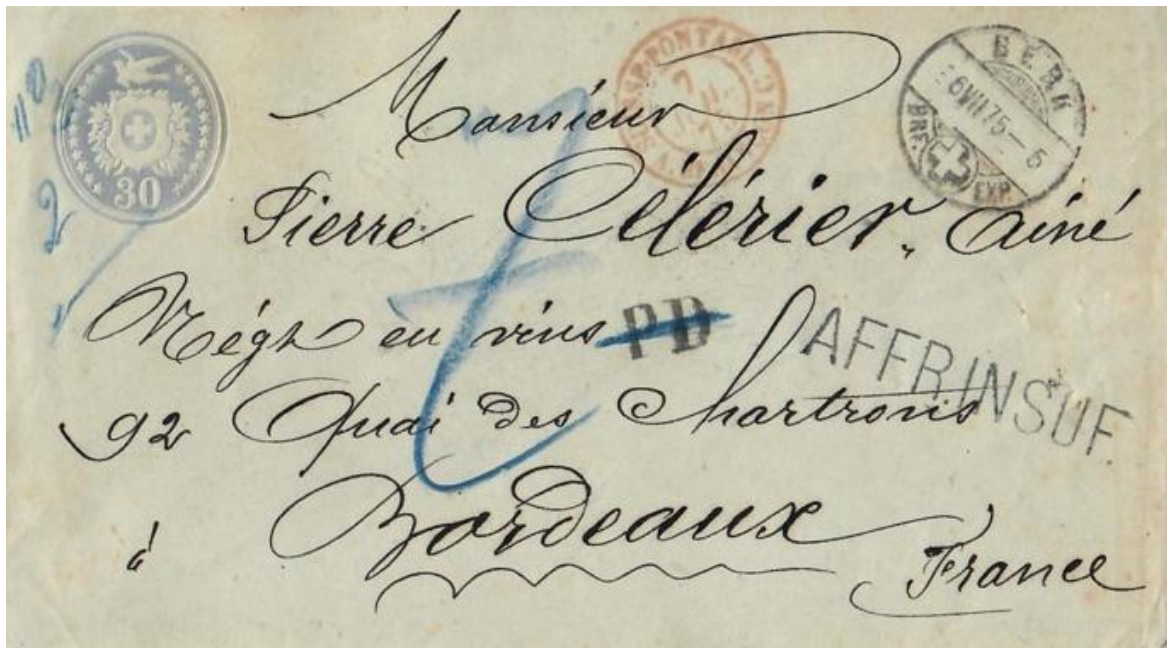 30
BERN
6 VII 75 – 6
BRF. EXP.
Monsieur
Pierre Célérier, Ainé
Négt en vins
PD
AFFR. INSUF.
92 Quai des Chartrons
à Bordeaux
France
7
2